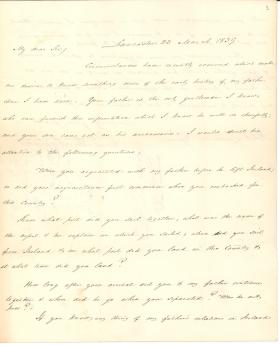 Lancaster 22 March, 1839
My dear Sir,
Circumstances have recently occurred which make
me desirous to know something more of the early history of my father
than I have done. Your father is the only gentleman I know,
who can furnish the information which I know he will do cheerfully;
and you can act as his amanuensis. I would direct his
attention to the following questions.
Were you acquainted with my father before he left Ireland,
or did your acquaintance first commence when you embarked for
this Country?
From what port did you sail together, what was the name of
the ship & the captain in which you sailed, when did you sail
from Ireland & at what port did you land in this Country &
at what time did you land?
How long after your arrival did you & my father continue
together & where did he go when you separated?
If you know any thing of my father's relations in Ireland